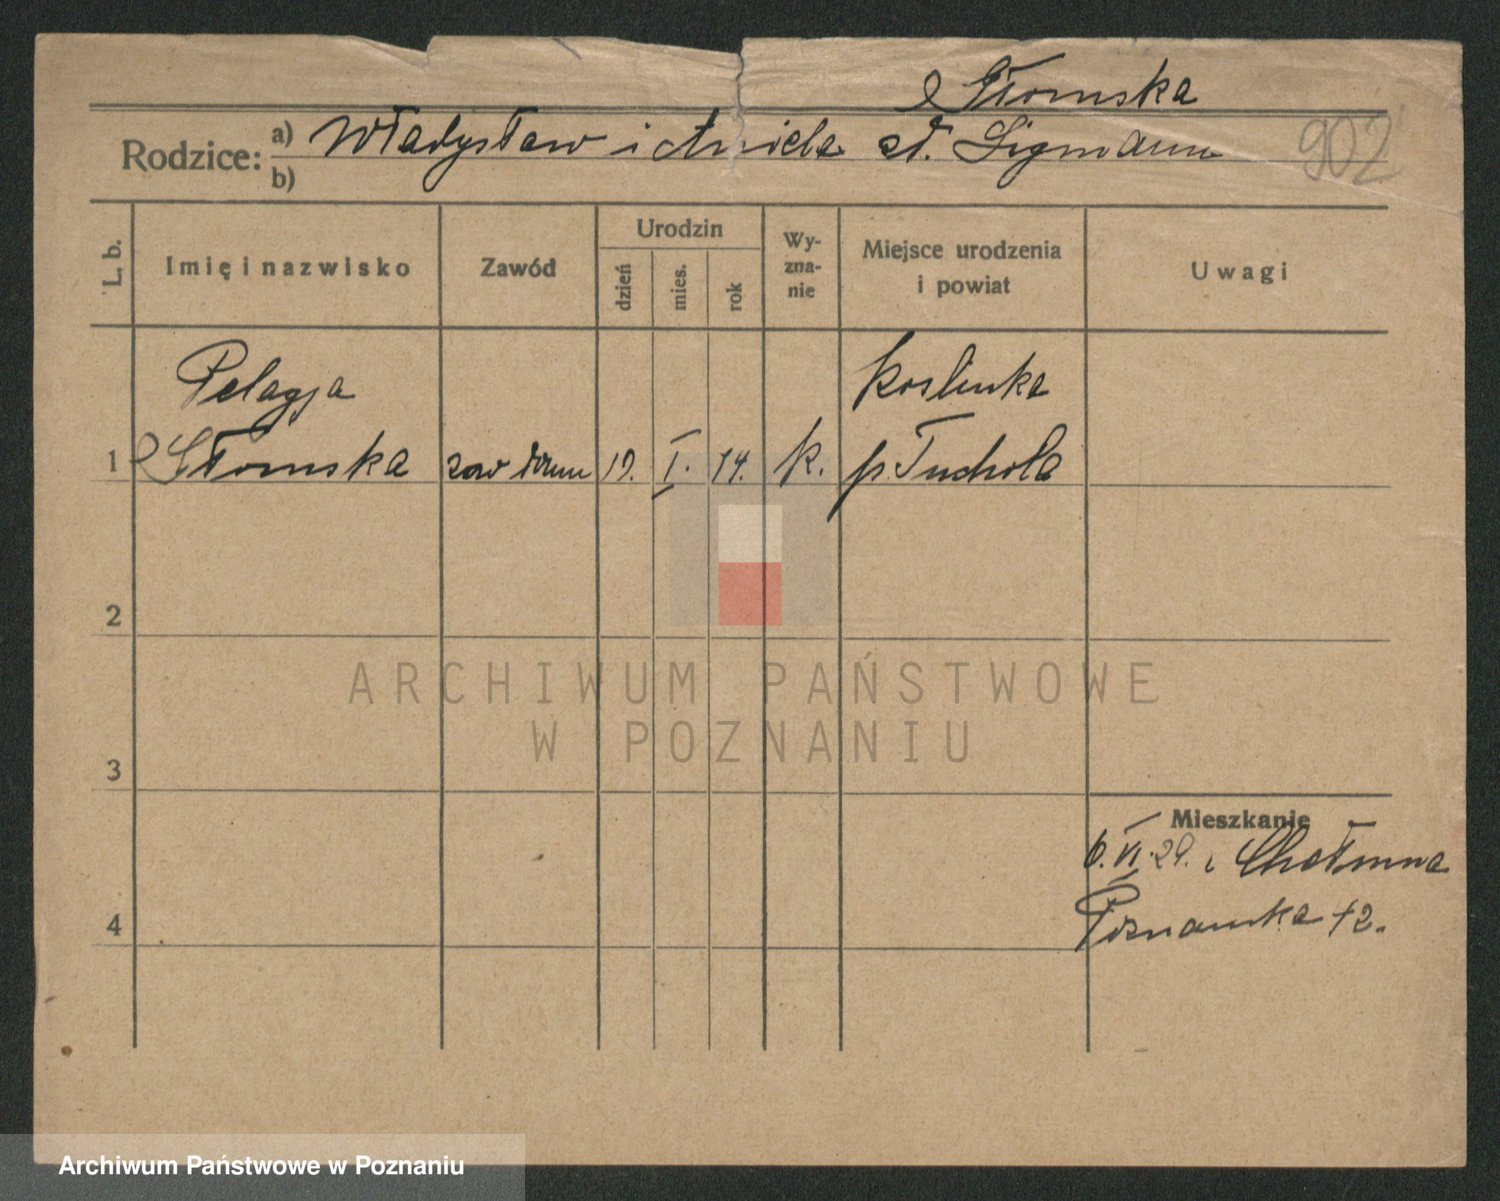 Słomska
Rodzice: a) Władysław i Aniela st. Sigmann
b)
902
L. b.
Imię i nazwisko
Zawód
Urodzin
dzień
mies.
rok
Wy-
zna-
nie
Miejsce urodzenia
i powiat
Uwagi
Pelagja
Koslinka
1 Słomska
19. I. 14. k. p. Tuchola
2
ARCHIWUM PAŃSTWOWE
W POZNANIU
3
Mieszkanie
6. VI. 29. z Chełmna
4
Poznanska 42.
Archiwum Państwowe w Poznaniu